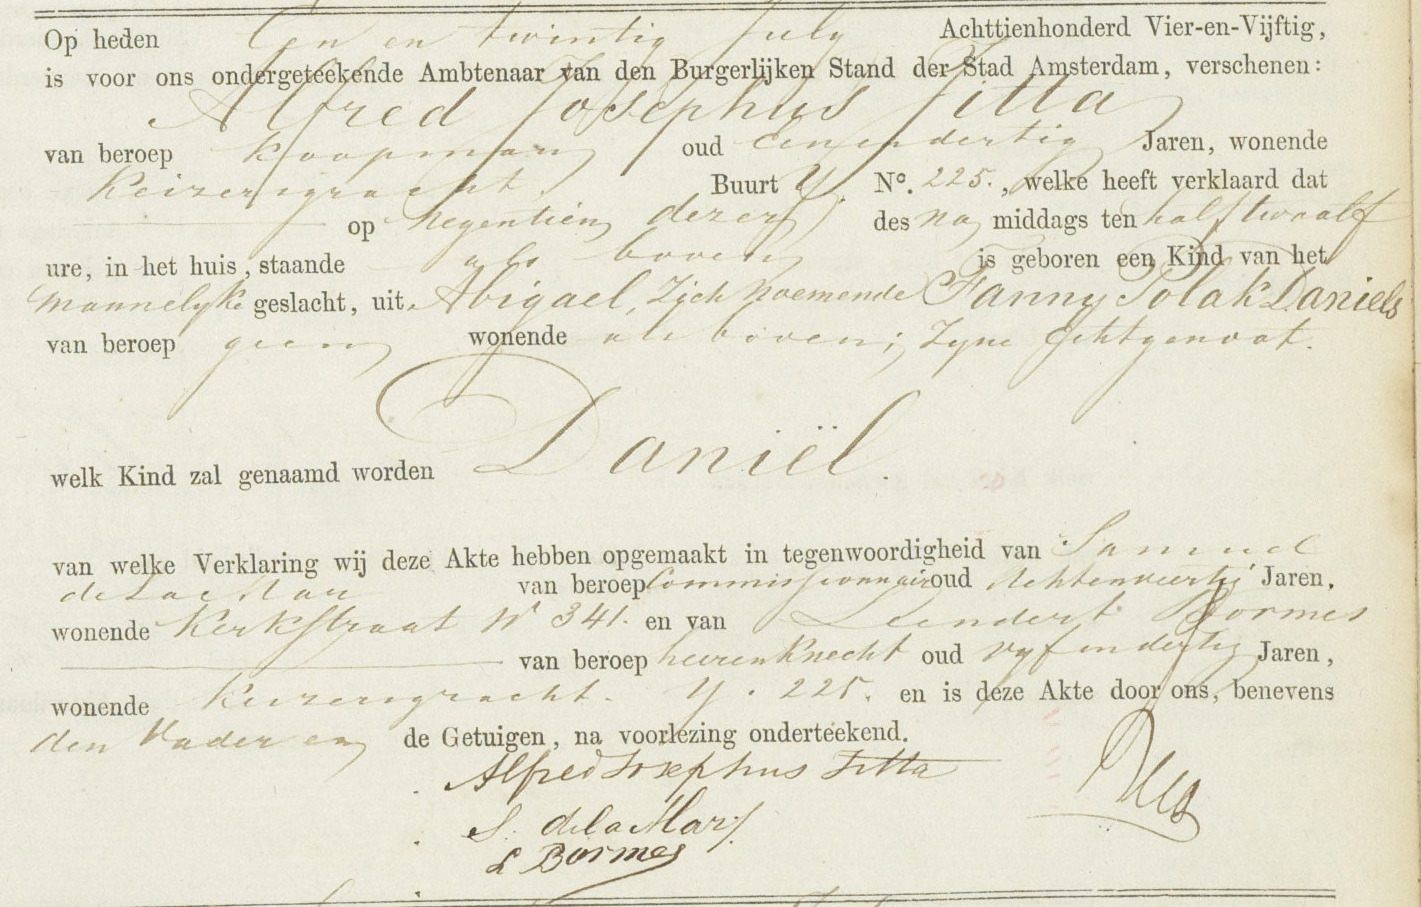 Op heden Een en twintig July Achttienhonderd Vier-en-Vijftig,
is voor ons ondergeteekende Ambtenaar van den Burgerlijken Stand der Stad Amsterdam, verschenen:
Alfred Josephus Jitta
van beroep Koopman oud Eenendertig Jaren, wonende
Keizersgracht. Buurt Y. No. 225., welke heeft verklaard dat
op negentien dezer des na middags ten half twaalf
ure, in het huis, staande als boven is geboren een Kind van het
Mannelyke geslacht, uit Abigael, Zich noemende Fanny Polak Daniels
van beroep geen wonende als boven; Zyne Echtgenoot.
welk Kind zal genaamd worden Daniël.
van welke Verklaring wij deze Akte hebben opgemaakt in tegenwoordigheid van Samuel
de La Mar van beroep Commissionnair oud Achtenveertig Jaren,
wonende Kerkstraat No 341. en van Leendert Bormes
van beroep heerenknecht oud vyfendertig Jaren,
wonende Keizersgracht. Y. 225. en is deze Akte door ons, benevens
den Vader en de Getuigen, na voorlezing onderteekend.
Alfred Josephus Jitta
S. de la Mar
L Bormes